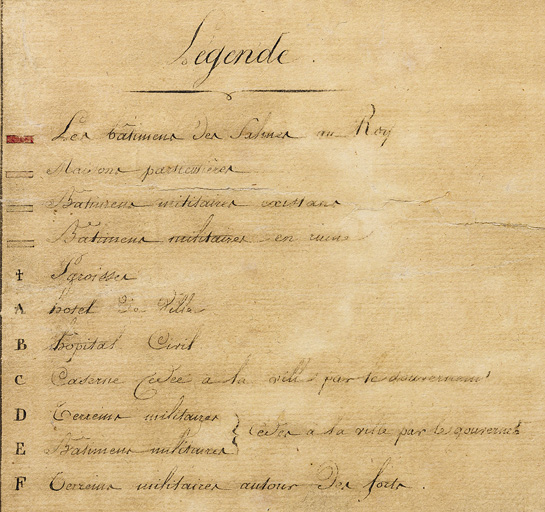 Légende.
Les bâtimens des Salines au Roy
Maisons particulières
Bâtimens militaires existans
Bâtimens militaires en ruine
✝ Paroisse
A hotel de Ville
B hôpital Civil
C Caserne Cédée a la ville par le Gouvernemt
D Terreins militaires
} Cédés a la ville par le gouvernemt
E Bâtimens militaires
F Terreins militaires autour des forts.